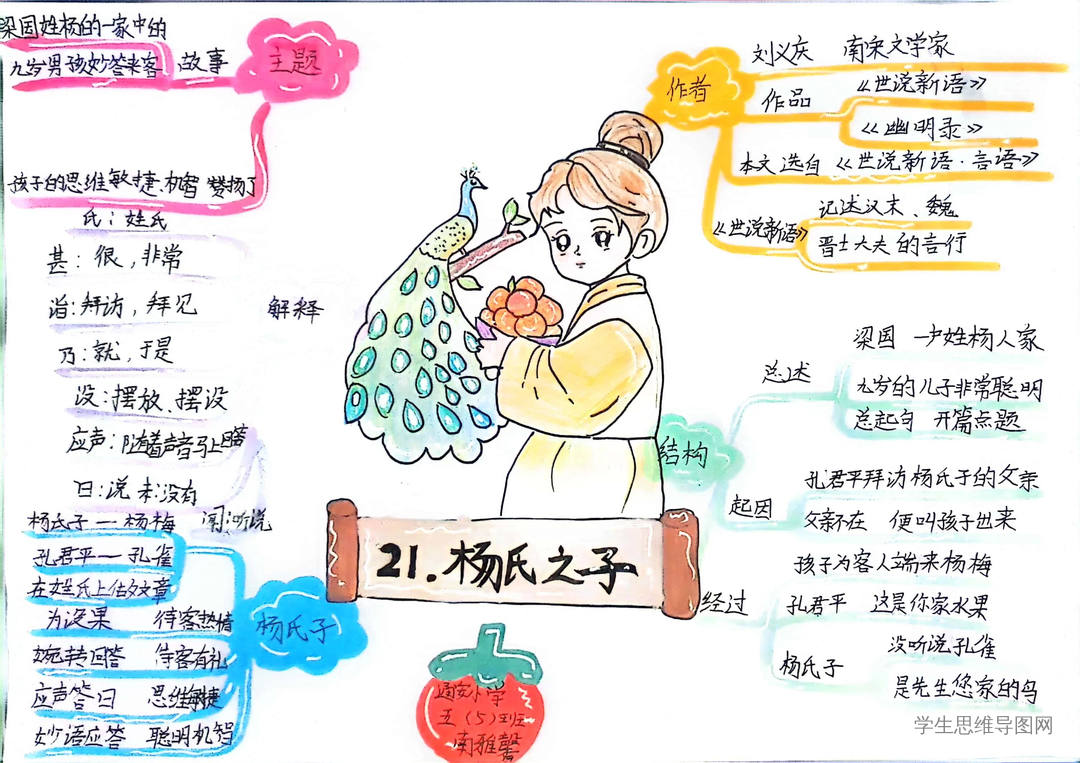 梁国姓杨的一家中的
九岁男孩妙答来客
故事
主题
孩子的思维敏捷.机智 赞扬了
氏：姓氏
甚：很，非常
诣：拜访，拜见
乃：就，于是
设：摆放、摆设
应声：随着声音马上回答
曰：说 未：没有
闻：听说
解释
杨氏子一杨梅
孔君平一孔雀
在姓氏上做文章
为设果 待客热情
婉转回答 待客有礼
应声答曰 思维敏捷
妙语应答 聪明机智
杨氏子
21.杨氏之子
五（5）班
南雅馨
作者
刘义庆 南宋文学家
作品
《世说新语》
《幽明录》
本文选自《世说新语·言语》
《世说新语》
记述汉末、魏
晋士大夫的言行
结构
总述
梁国 一户姓杨人家
九岁的儿子非常聪明
总起句 开篇点题
起因
孔君平拜访杨氏子的父亲
父亲不在 便叫孩子出来
经过
孩子为客人端来杨梅
孔君平 这是你家水果
杨氏子
没听说孔雀
是先生您家的鸟
学生思维导图网